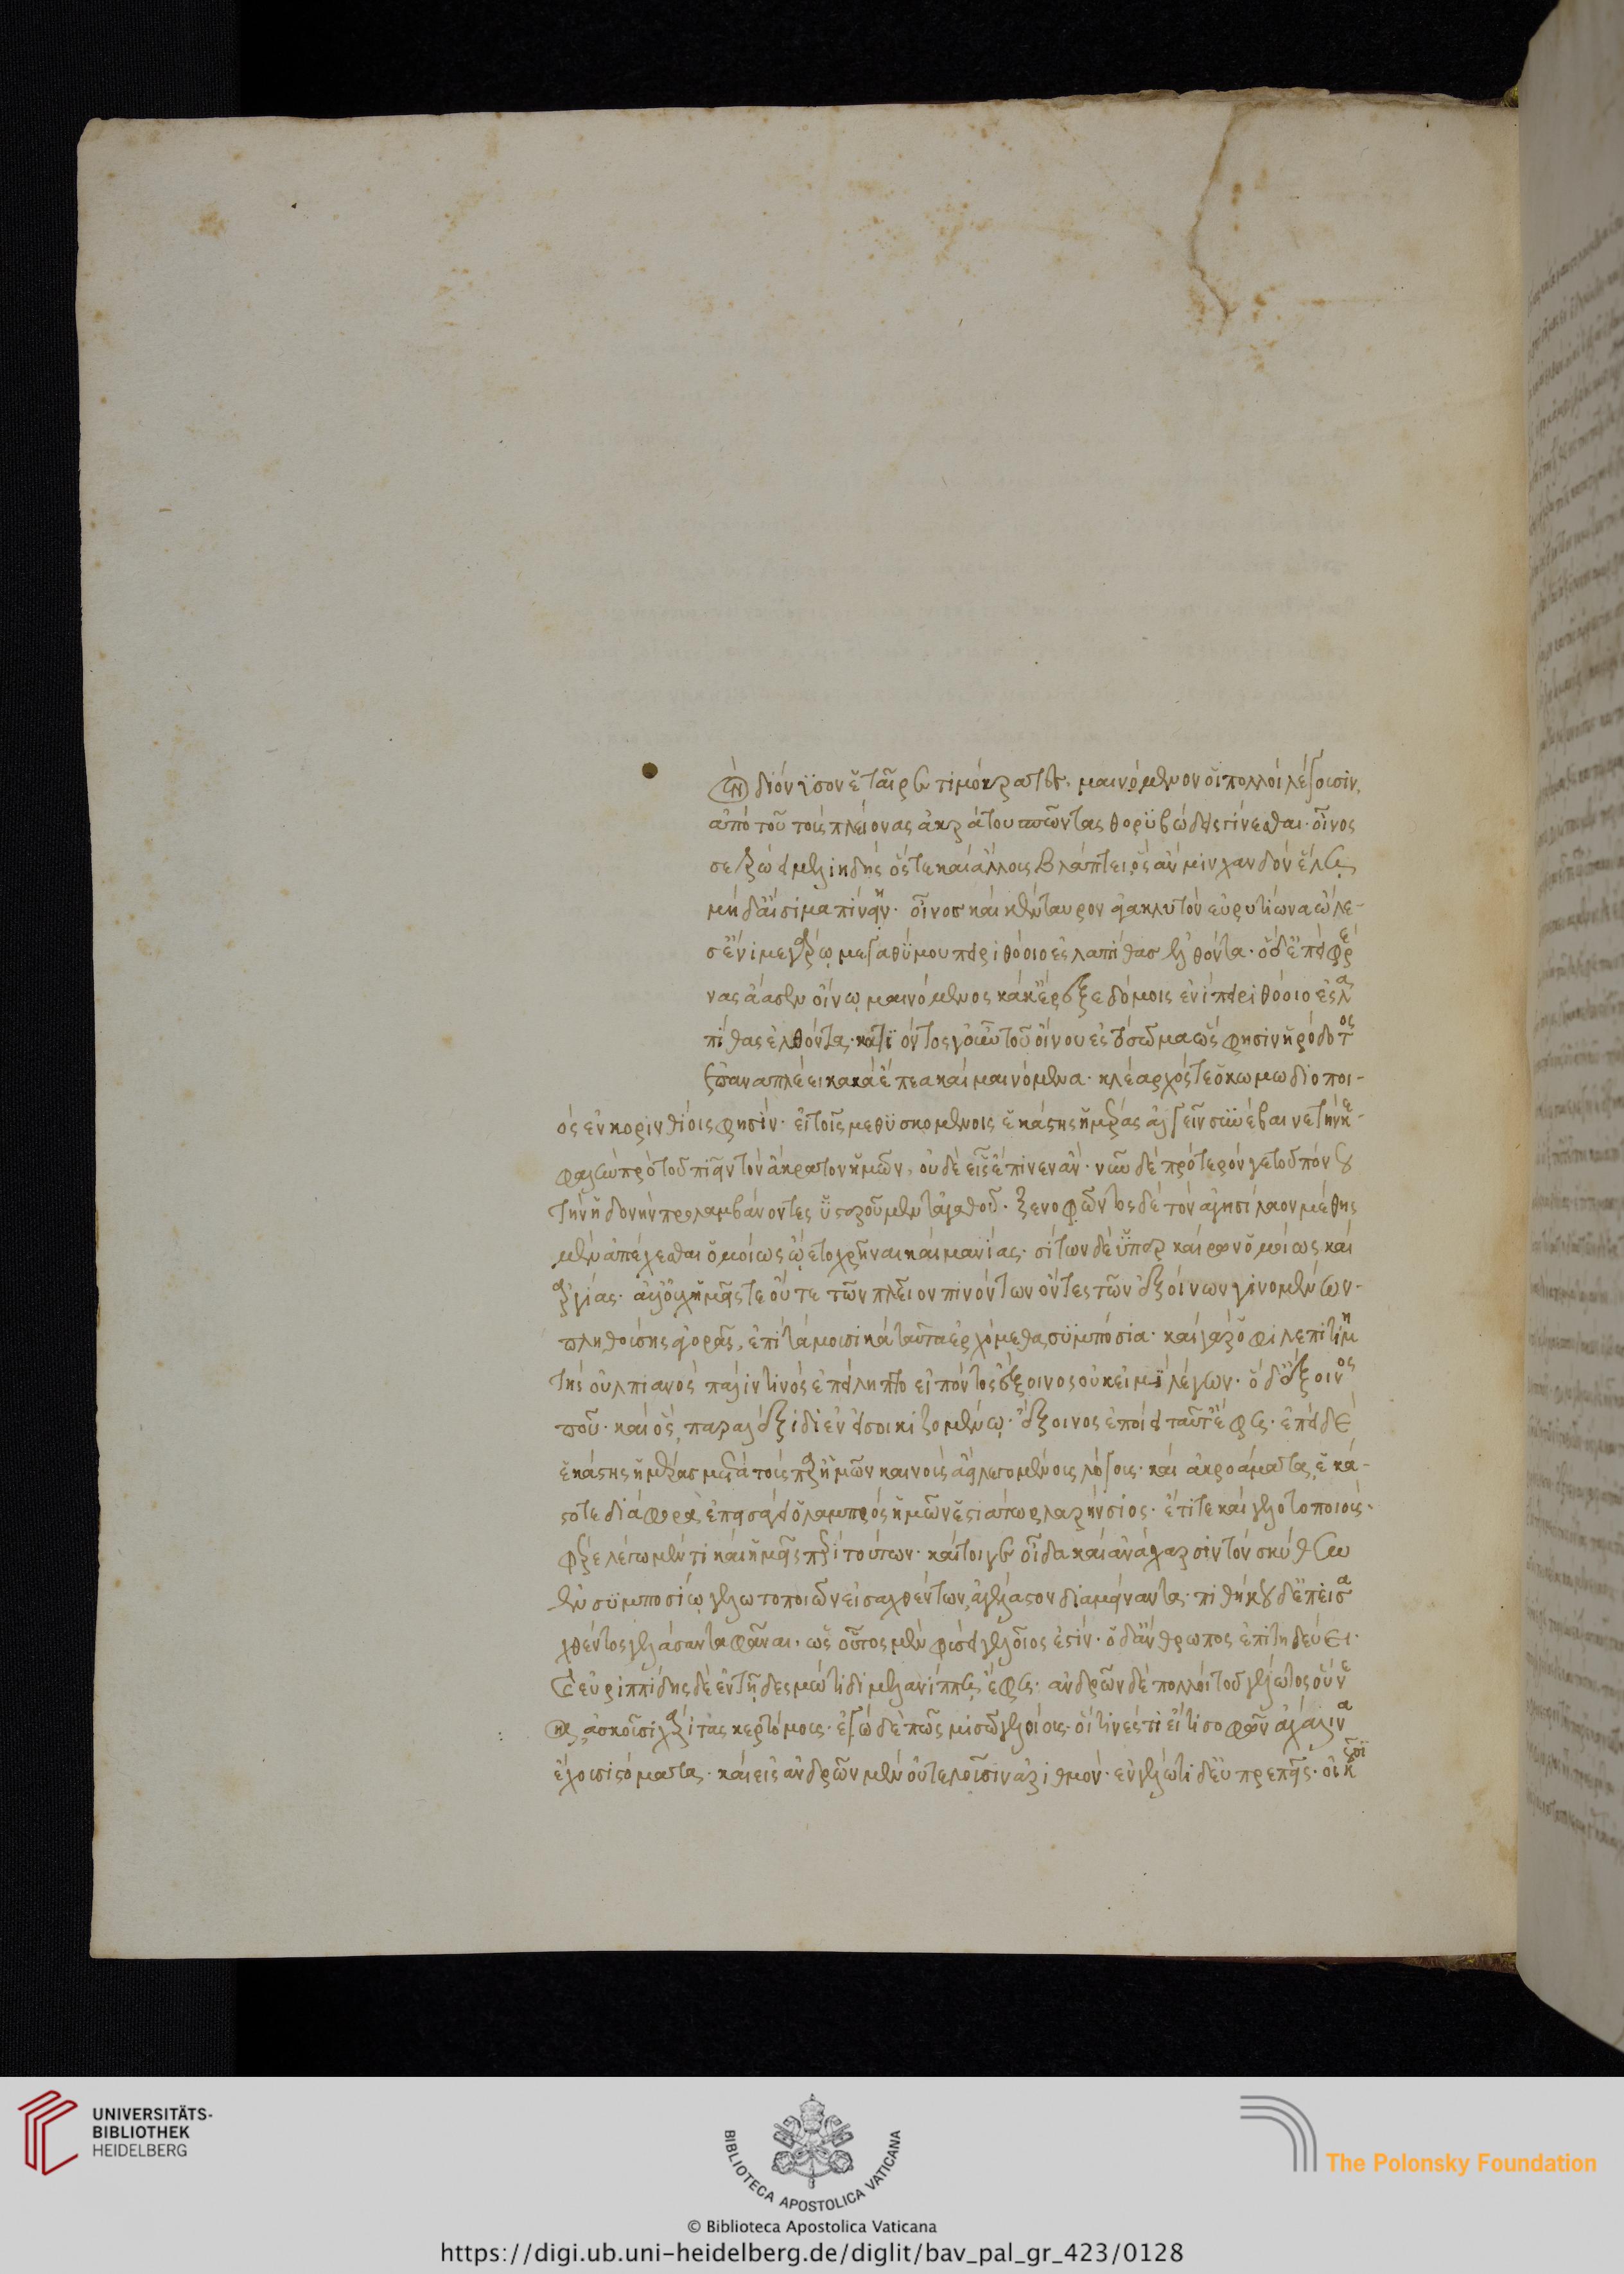 τὸν διόνυσον ἑταῖρε τιμόκρατες, μαινόμενον οἱ πολλοὶ λέγουσιν,
ἀπὸ τοῦ τοὺς πλείονας ἀκράτου σπῶντας θορυβώδεις γίνεσθαι. οἶνος
σε τρώει μελιηδής ὅς τε καὶ ἄλλους βλάπτει ὃς ἄν μιν χανδὸν ἕλῃ
μηδ' αἴσιμα πίνῃ. οἶνος καὶ κένταυρον ἀγακλυτὸν εὐρυτίωνα ὤλε-
σ' ἐνὶ μεγάρῳ μεγαθύμου πειριθόοιο ἐς λαπίθας ἐλθόντα. ὁ δ' ἐπεὶ φρέ
νας ἄασεν οἴνῳ μαινόμενος κάκ' ἔρεξε δόμοις ἐνὶ πειριθόοιο ἐς λα
πίθας ἐλθόντα. κατιόντος γοῦν τοῦ οἴνου ἐς τὸ σῶμα ὥς φησιν ἡρόδοτος
ἐπαναπλέει κακὰ ἔπεα καὶ μαινόμενα. κλέαρχός τε ὁ κωμωδιοποι-
ὸς ἐν κορινθίοις φησίν. εἰ τοῖς μεθυσκομένοις ἑκάστης ἡμέρας ἀλγεῖν συνέβαινε τὴν κε-
φαλὴν πρὸ τοῦ πιεῖν τὸν ἄκρατον ἡμῶν, οὐδὲ εἷς ἔπινεν ἄν. νῦν δὲ πρότερόν γε τοῦ πόνου
τὴν ἡδονὴν προλαμβάνοντες ὑστεροῦμεν τἀγαθοῦ. ξενοφῶντος δὲ τὸν ἀγησίλαον μέθης
μὲν ἀπέχεσθαι ὁμοίως ᾤετο χρῆναι καὶ μανίας. σίτων δὲ ὑπὲρ καιρὸν ὁμοίως καὶ
ἀργίας. ἀλλ' οὐχ ἡμεῖς τε οὔτε τῶν πλεῖον πινόντων ὄντες τῶν ἐξοίνων γινομένων.
πληθούσης ἀγορᾶς, ἐπὶ τὰ μουσικὰ ταῦτα ἐρχόμεθα συμπόσια. καὶ γὰρ ὁ φιλεπιτιμη
τὴς οὐλπιανὸς πάλιν τινὸς ἐπελήπτετο εἰπόντος ἔξοινος οὐκ εἰμὶ λέγων. ὁ δ' ἔξοινος
ποῦ. καὶ ὅς, παρ' ἀλέξιδι ἐν εἰσοικιζομένῳ. ἔξοινος ἐποίει ταῦτ' ἔφη. ἐπεὶ δὲ
ἑκάστης ἡμέρας μετὰ τοὺς παρ' ἡμῶν καινοὺς ἀεὶ λεγομένους λόγους. καὶ ἀκροάματα ἑκά-
στοτε διάφορα ἐπεισάγει ὁ λαμπρὸς ἡμῶν ἑστιάτωρ λαρήνσιος. ἔτι τε καὶ γελωτοποιούς.
φέρε λέγωμέν τι καὶ ἡμεῖς περὶ τούτων. καίτοι γε οἶδα καὶ ἀνάχαρσιν τὸν σκύθην
ἐν συμποσίῳ γελωτοποιῶν εἰσαχθέντων, ἀγέλαστον διαμείναντα. πιθήκου δ' ἐπεισα
χθέντος γελάσαντα φάναι. ὡς οὗτος μὲν φύσει γελοῖος ἐστίν. ὁ δ' ἄνθρωπος ἐπιτηδεύει.
εὐριπίδης δὲ ἐν τῇ δεσμώτιδι μελανίππῃ ἔφη. ἀνδρῶν δὲ πολλοὶ τοῦ γέλωτος οὕνε
κα, ἀσκοῦσι χάριτας κερτόμους. ἐγὼ δέ πως μισῶ γελοίους. οἵτινες τι εἴ τι σοφῶν ἀχάλινα
ἔχουσι στόματα. καὶ εἰς ἀνδρῶν μὲν οὐ τελοῦσιν ἀριθμόν. ἐν γέλωτι δ' εὐπρεπεῖς. οἰκ
UNIVERSITÄTS-
BIBLIOTHEK
HEIDELBERG
BIBLIOTECA APOSTOLICA VATICANA
The Polonsky Foundation
© Biblioteca Apostolica Vaticana
https://digi.ub.uni-heidelberg.de/diglit/bav_pal_gr_423/0128